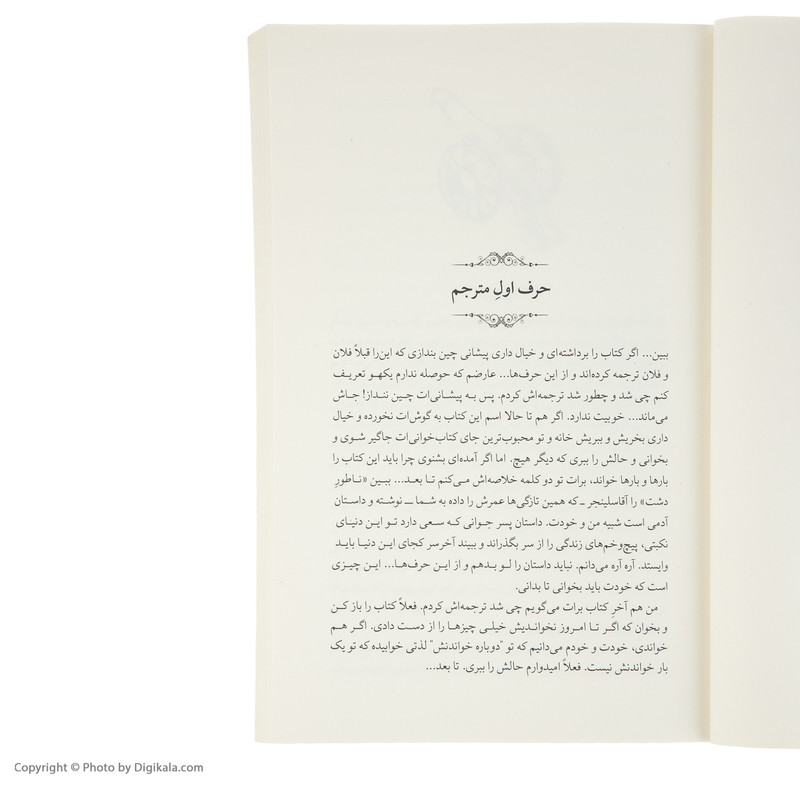 حرف اولِ مترجم
ببین... اگر کتاب را برداشته‌ای و خیال داری پیشانی چین بندازی که این‌را قبلاً فلان
و فلان ترجمه کرده‌اند و از این حرف‌ها... عارضم که حوصله ندارم یکهو تعریف
کنم چی شد و چطور شد ترجمه‌اش کردم. پس به پیشانی‌ات چین ننداز! جاش
می‌ماند... خوبیت ندارد. اگر هم تا حالا اسم این کتاب به گوش‌ات نخورده و خیال
داری بخریش و ببریش خانه و تو محبوب‌ترین جای کتاب‌خوانی‌ات جاگیر شوی و
بخوانی و حالش را ببری که دیگر هیچ. اما اگر آمده‌ای بشنوی چرا باید این کتاب را
بارها و بارها خواند، برات تو دو کلمه خلاصه‌اش می‌کنم تا بعد... ببین «ناطورِ
دشت» را آقاسلینجر ــ که همین تازگی‌ها عمرش را داده به شما ــ نوشته و داستان
آدمی است شبیه من و خودت. داستان پسر جوانی که سعی دارد تو این دنیای
نکبتی، پیچ‌وخم‌های زندگی را از سر بگذراند و ببیند آخرسر کجای این دنیا باید
وایستد. آره آره می‌دانم. نباید داستان را لو بدهم و از این حرف‌ها... این چیزی
است که خودت باید بخوانی تا بدانی.
من هم آخرِ کتاب برات می‌گویم چی شد ترجمه‌اش کردم. فعلاً کتاب را باز کن
و بخوان که اگر تا امروز نخواندیش خیلی چیزها را از دست دادی. اگر هم
خواندی، خودت و خودم می‌دانیم که تو "دوباره خواندنش" لذتی خوابیده که تو یک
بار خواندنش نیست. فعلاً امیدوارم حالش را ببری. تا بعد...
Copyright © Photo by Digikala.com